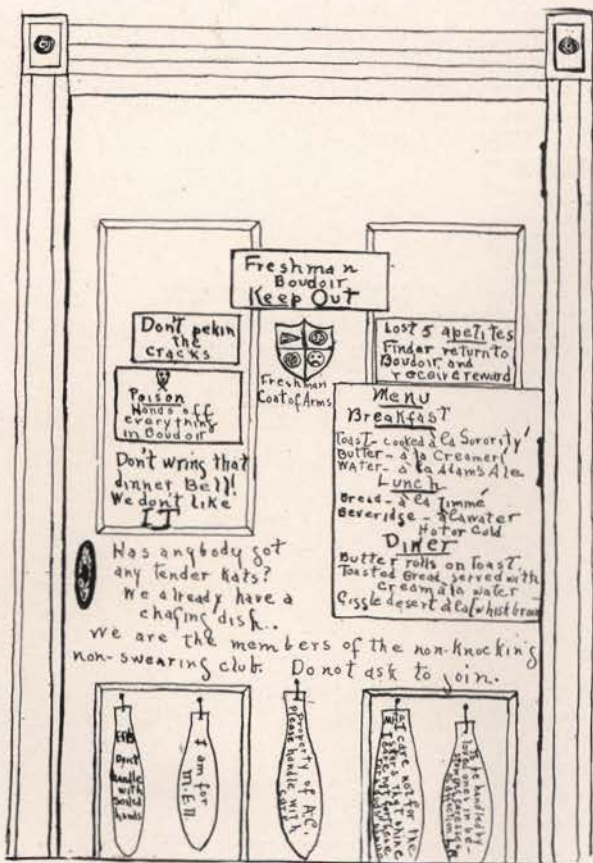 Freshman
Boudoir
Keep Out
Don't pekin
the
Cracks
Poison
Hands off
everything
in Boudoir
Don't wring that
dinner Bell!
We don't like
IT
Freshman
Coat of Arms
Lost 5 apetites
Finder return to
Boudoir and
receive reward
Menu
Breakfast
Toast - cooked à la Sorority
Butter - à la Creameri
Water - à la Adam's Ale
Lunch
Bread - à la Jimmé
Beveridge - à la water
Hot or Cold
Diner
Butter rolls on Toast.
Toasted Bread, served with
cream à la water
Giggle desert à la whisk broom
Has anybody got
any tender Kats?
We already have a
chafing dish..
We are the members of the non-knocking
non-swearing club. Do not ask to join.
EFB
Don't
handle
with
soiled
hands
I am for
M.E.H.
Property of A.C.
Please handle with
care
I care not for the
stars that shine
To be handled by
loved ones in be-